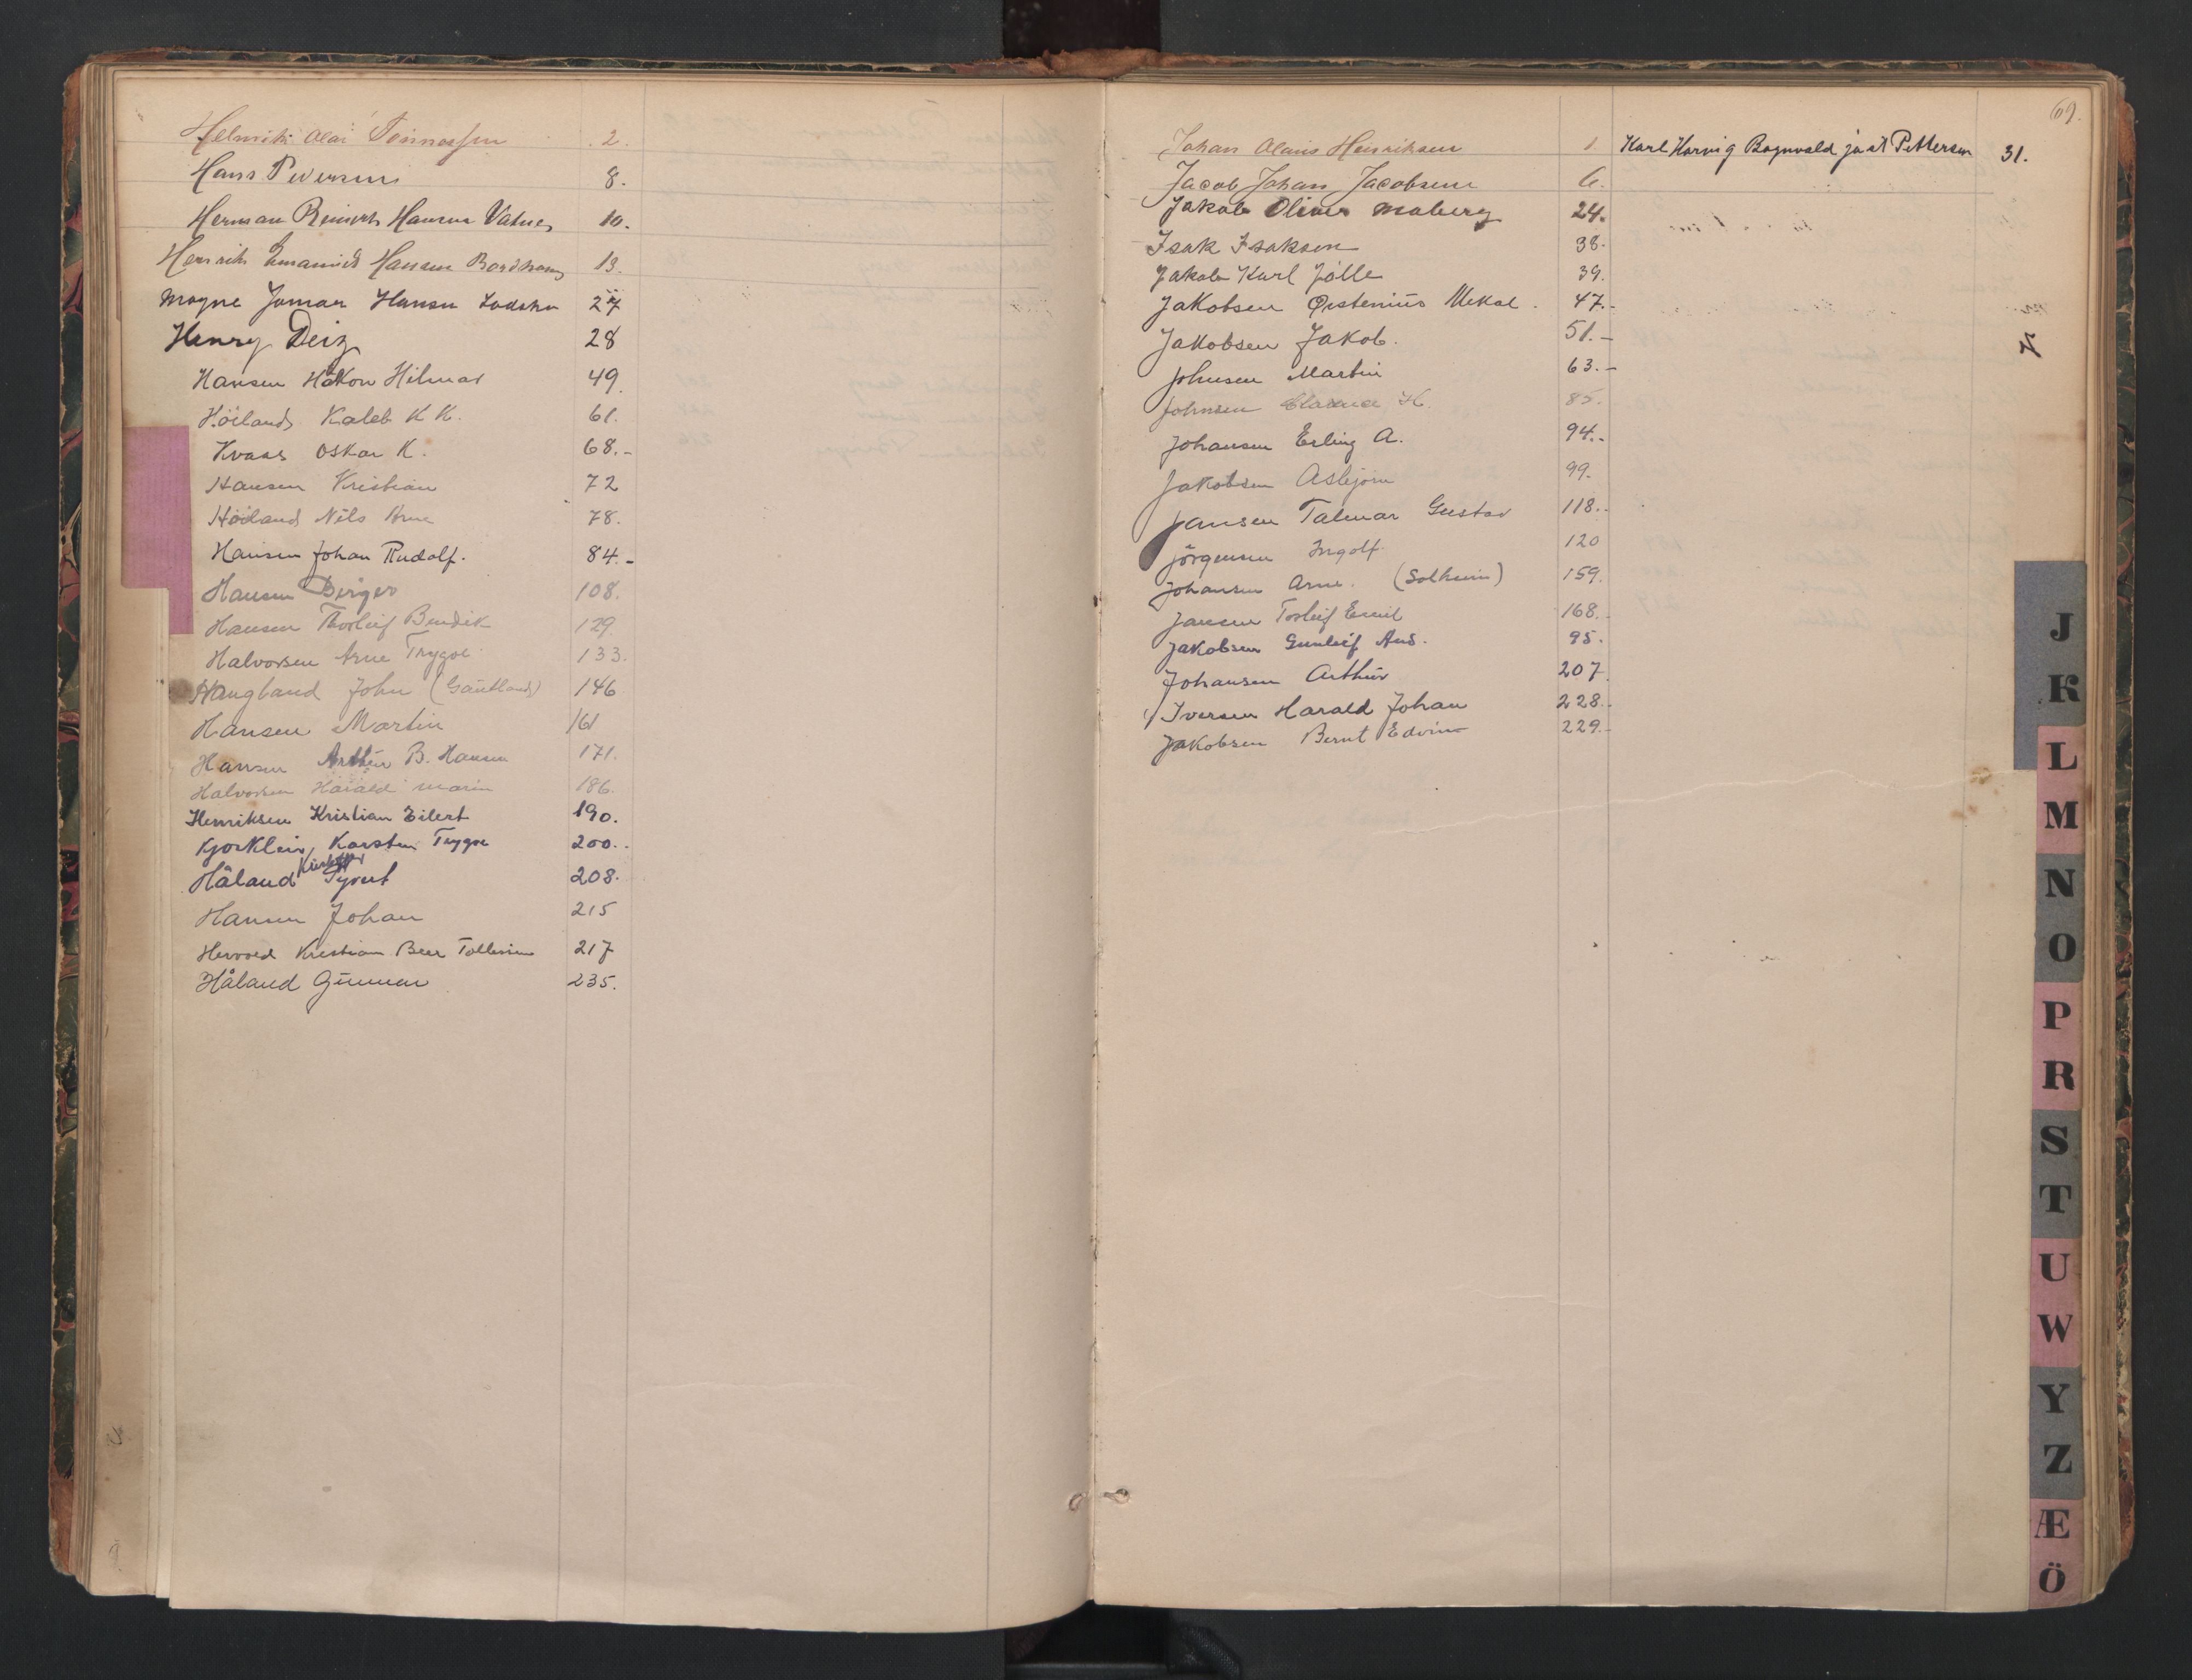 Helmik Olai Tönnessen 2.
Hans Pedersen 8.
Herman Reinert Hansen Vatne 10.
Henrik Emanuel Hansen 13.
Magne Jomar Hansen 27
Henry Deiz 28
Hansen Håkon Hilmar 49.
Höiland Kaleb K K. 61.
Kvaas Oskar K. 68.-
Hansen Kristian 72
Höiland Nils Arne 78.
Hansen Johan Rudolf. 84.-
Hansen Birger 108.
Hansen Thorleif Bendik 129.
Halvorsen Arne Trygve 133.
Haugland John (Gautland) 146
Hansen Martin 161
Hansen Arthur B. Hansen 171.
Halvorsen Harald Marin 186.
Henriksen Kristian Eilert 190.
Karsten Trygve 200.
Håland Syvert 208.
Hansen Johan 215
Kristian Beer Tollefsen 217
Håland Gunnar 235.
69.
Johan Olaus Henriksen 1
Jacob Johan Jacobsen 6.
Jakob Oliver Moberg 24.
Isak Isaksen 38.
Jakob Karl Jølle 39.
Jakobsen Mekal 47.-
Jakobsen Jakob. 51.-
Johnsen Martin 63.-
Johnsen H. 85.
Johansen Erling A. 94.-
Jakobsen Asbjørn 99.
Jansen Talmar Gustav 118.-
Jörgensen Ingolf 120
Johansen Arne. (Solheim) 159.
Jansen Torleif Emil 168.
Jakobsen Gunleif And. 95.
Johansen Arthur 207
Iversen Harald Johan 228.-
Jakobsen Bernt Edvin 229.-
Karl Harvig Ragnvald Pettersen 31.
J
K
L
M
N
O
P
R
S
T
U
W
Y
Z
Æ
Ö